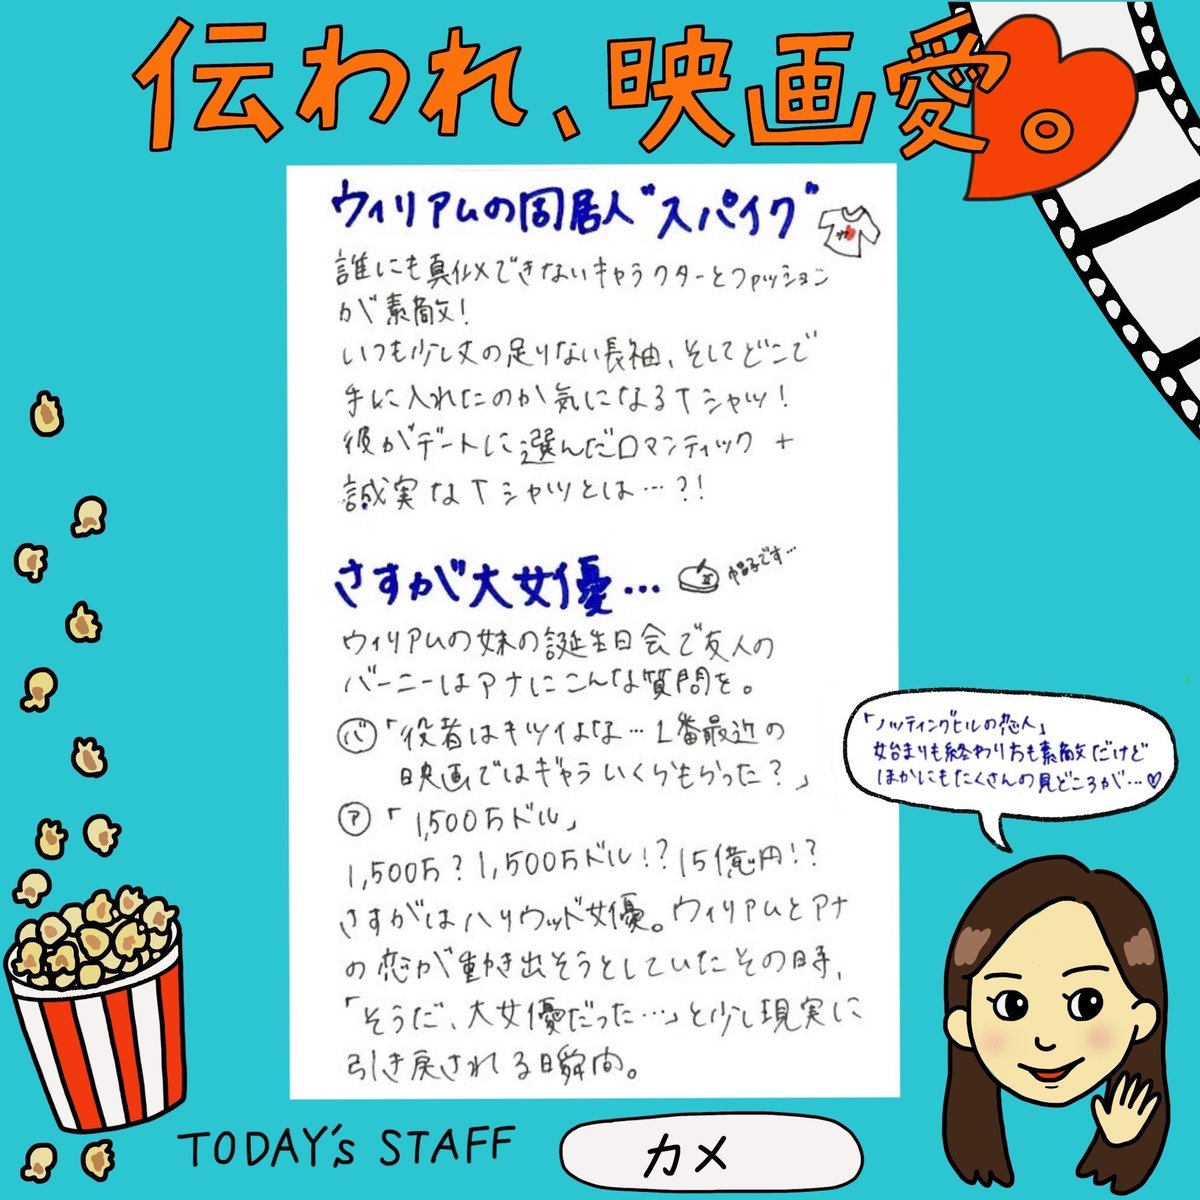 伝われ、映画愛。
ウィリアムの同居人"スパイク"
誰にも真似できないキャラクターとファッション
が素敵!
いつも少し丈の足りない長袖、そしてどこで
手に入れたのか気になるTシャツ!
彼がデートに選んだロマンティック+
誠実なTシャツとは…?!
さすが大女優…
帽子です…
ウィリアムの妹の誕生日会で友人の
バーニーはアナにこんな質問を。
バ「役者はキツイよな…1番最近の
映画ではギャラいくらもらった?」
ア「1,500万ドル」
1,500万?1,500万ドル!?15億円!?
さすがはハリウッド女優。ウィリアムとアナ
の恋が動き出そうとしていたその時、
「そうだ、大女優だった…」と少し現実に
引き戻される瞬間。
「ノッティングヒルの恋人」
始まりも終わり方も素敵だけど
ほかにもたくさんの見どころが…♡
TODAY's STAFF
カメ